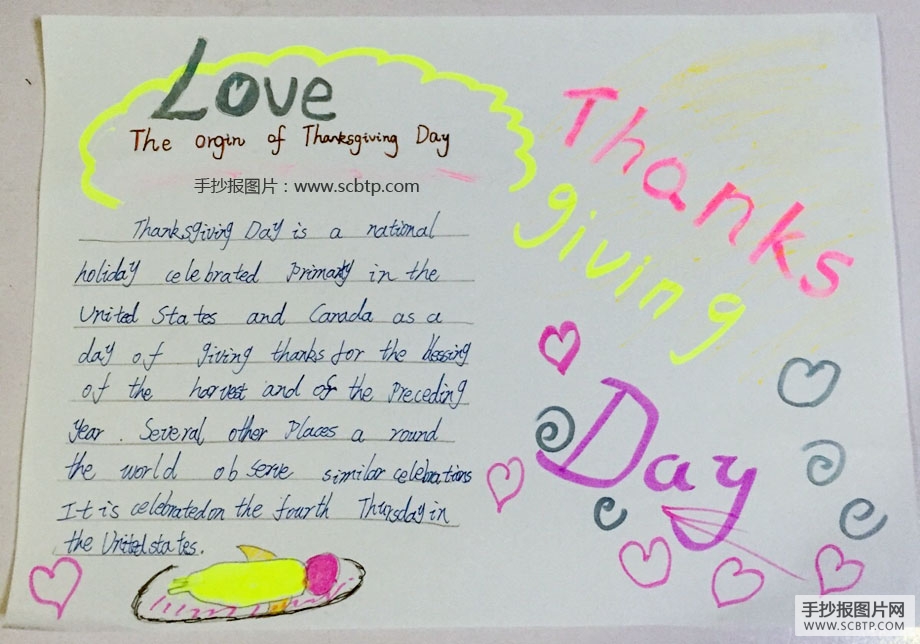 Love
The orgin of Thanksgiving Day
手抄报图片：www.scbtp.com
Thanksgiving Day is a national
holiday celebrated primarily in the
United States and Canada as a
day of giving thanks for the blessing
of the harvest and of the preceding
year. Several other places a round
the world observe similar celebrations
It is celebrated on the fourth Thursday in
the United states.
Thanks
giving
Day
手抄报图片网
WWW.SCBTP.COM